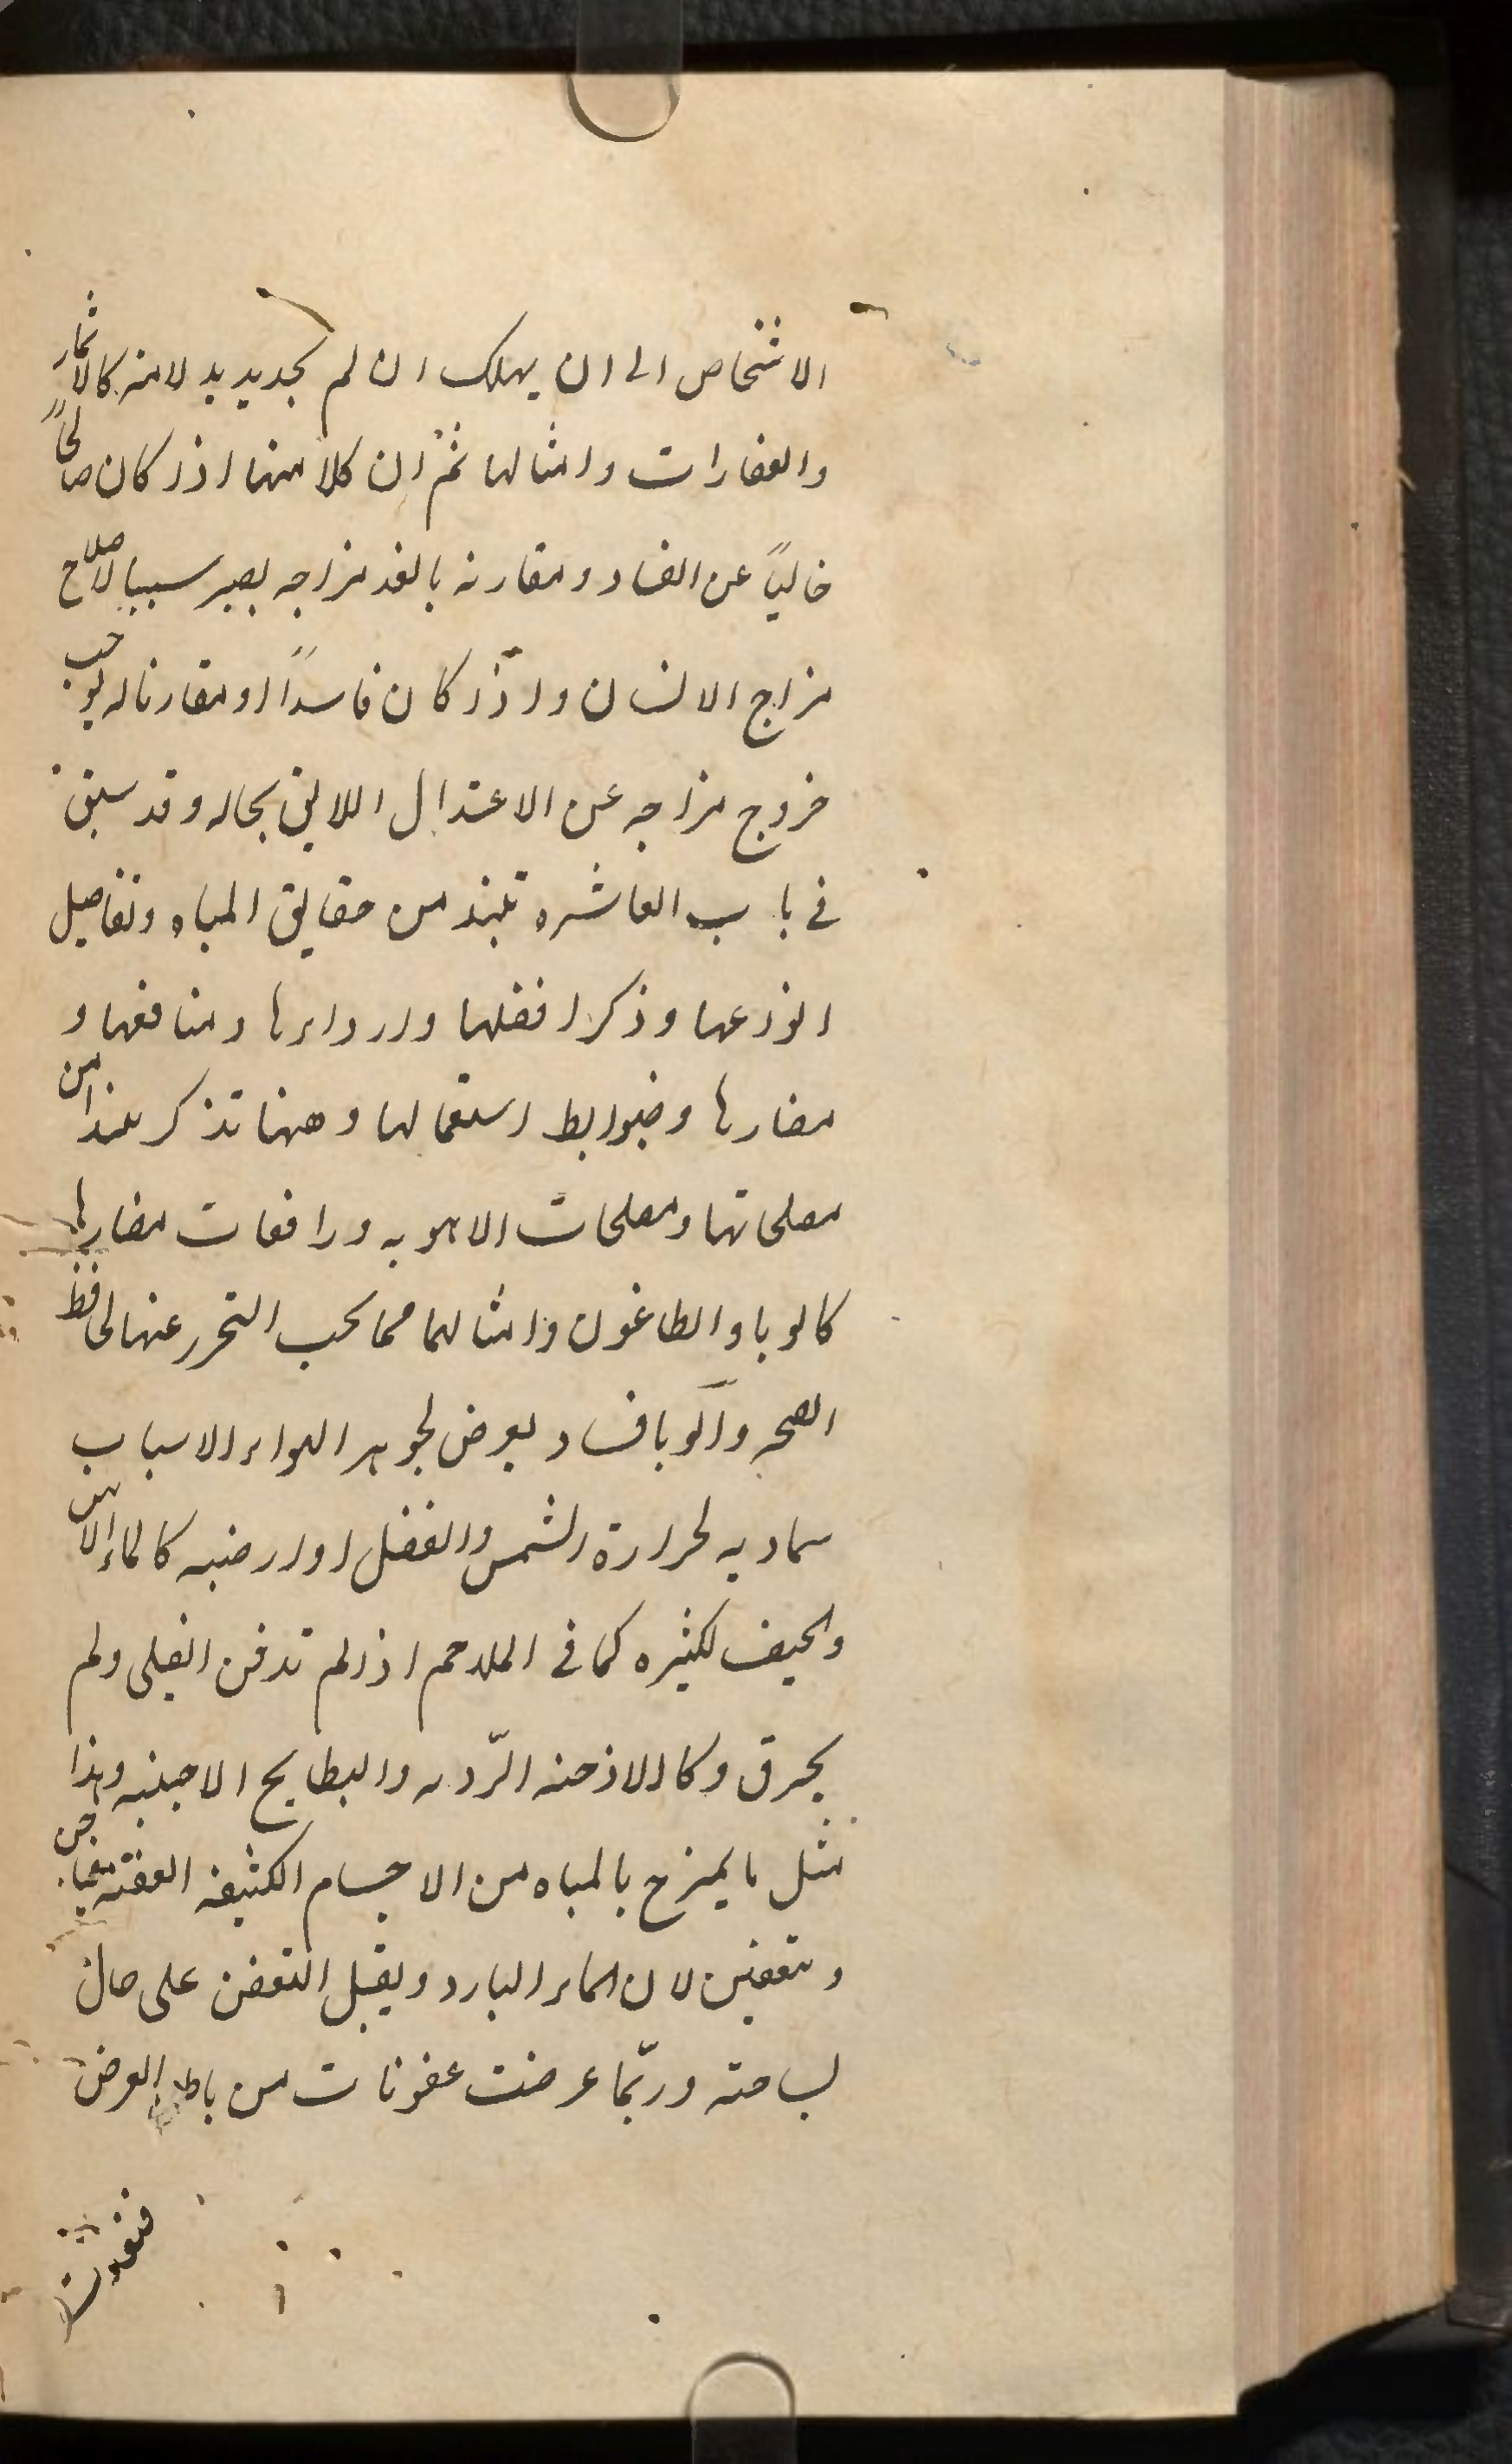 الاشخاص الى ان يهلك ان لم يجد يد بدلا منه كالاثمار
والعقارات وامثالها ثم ان كلا منها اذا كان صالحاً
خالياً عن الفساد ومقارنه بالغذ مزاجه يصير سببا لاصلاح
مزاج الانسان واذا كان فاسداً او مقارنا له يوجب
خروج مزاجه عن الاعتدال اللايق بحاله وقد سبق
فى باب العاشره نبذ من حقايق المياه وتفاصيل
انواعها وذكر افضلها وارداءها ومنافعها و
مضارها وضوابط استعمالها وههنا نذكر نبذا من
مصلحاتها ومصلحات الاهويه ورافعات مضارها
كالوبا والطاعون وامثالهما مما يجب التحرز عنها لحافظ
الصحه والوبا فساد يعرض لجوهر الهواء الاسباب
سماويه لحرارة الشمس والفضل او ارضيه كالماء الاسن
والجيف لكثيره كما فى الملاحم اذا لم تدفن القتلى ولم
يحرق وكالادخنه الرّديه والبطايح الاجنبيه وهذا
مثل ما يمزج بالمياه من الاجسام الكثيفه العفنه
وتتعفن لان الماء البارد ويقبل التعفن على حال
بساحته وربّما عرضت عفونات من باطن العرض